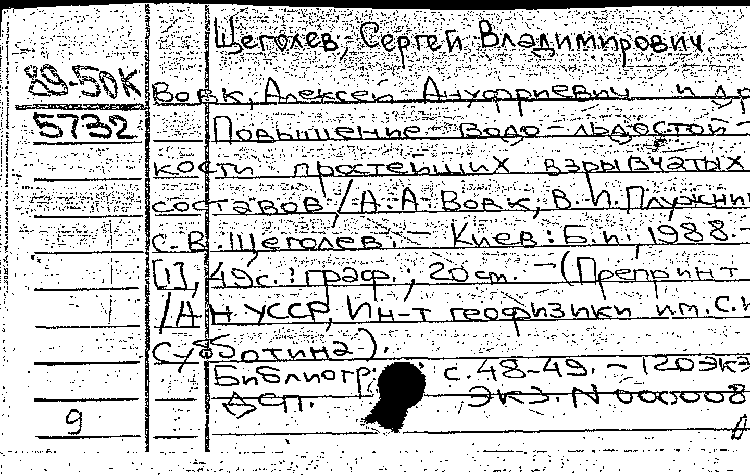 Щеголев, Сергей Владимирович.
89-50К
Вовк, Алексей Ануфриевич и др
5732
Повышение водо-льдостой-
кости простейших взрывчатых
составов / А.А. Вовк, В.И. Плужник
С.В. Щеголев. - Киев: Б.и., 1988.-
[1], 49с.: граф.; 20см. - (Препринт
/АН УССР, Ин-т геофизики им. С.И
Субботина).
Библиогр.: с.48-49. - 120экз
ДСП. Экз. N 000008
9